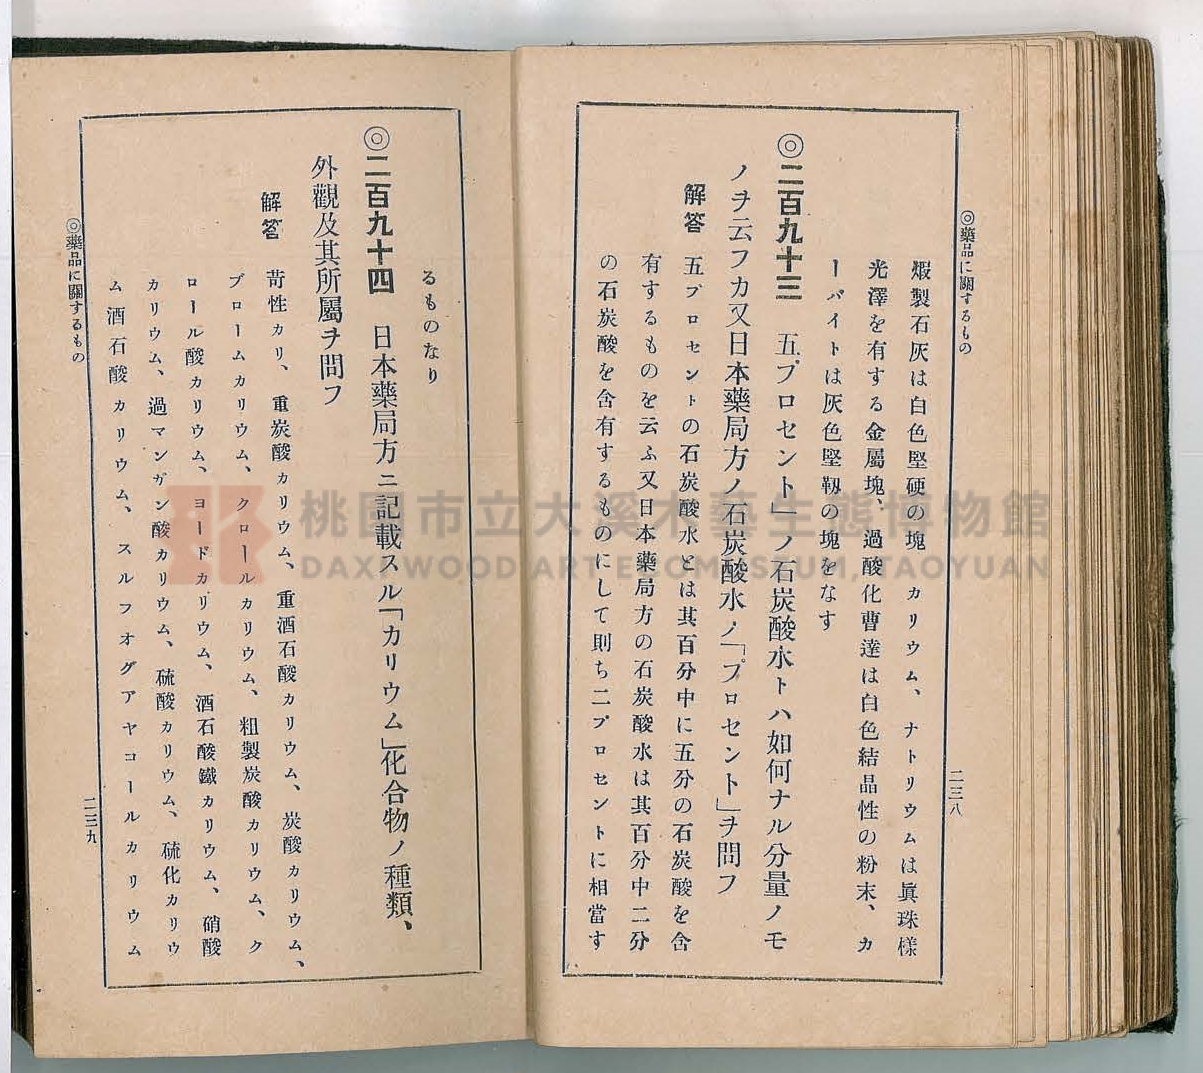 ◎藥品に關するもの
二三八
煆製石灰は白色堅硬の塊 カリウム、ナトリウムは眞珠樣
光澤を有する金屬塊、過酸化曹達は白色結晶性の粉末、カ
ーバイトは灰色堅靱の塊をなす
◎二百九十三 五「プロセント」ノ石炭酸水トハ如何ナル分量ノモ
ノヲ云フカ又日本藥局方ノ石炭酸水ノ「プロセント」ヲ問フ
解答 五プロセントの石炭酸水とは其百分中に五分の石炭酸を含
有するものを云ふ又日本藥局方の石炭酸水は其百分中二分
の石炭酸を含有するものにして則ち二プロセントに相當す
るものなり
◎二百九十四 日本藥局方ニ記載スル「カリウム」化合物ノ種類、
外觀及其所屬ヲ問フ
解答 苛性カリ、重炭酸カリウム、重酒石酸カリウム、炭酸カリウム、
ブロームカリウム、クロールカリウム、粗製炭酸カリウム、ク
ロール酸カリウム、ヨードカリウム、酒石酸鐵カリウム、硝酸
カリウム、過マンガン酸カリウム、硫酸カリウム、硫化カリウ
ム酒石酸カリウム、スルフオグアヤコールカリウム
◎藥品に關するもの
二三九
桃園市立大溪木藝生態博物館
DAXI WOOD ART ECOMUSEUM, TAOYUAN